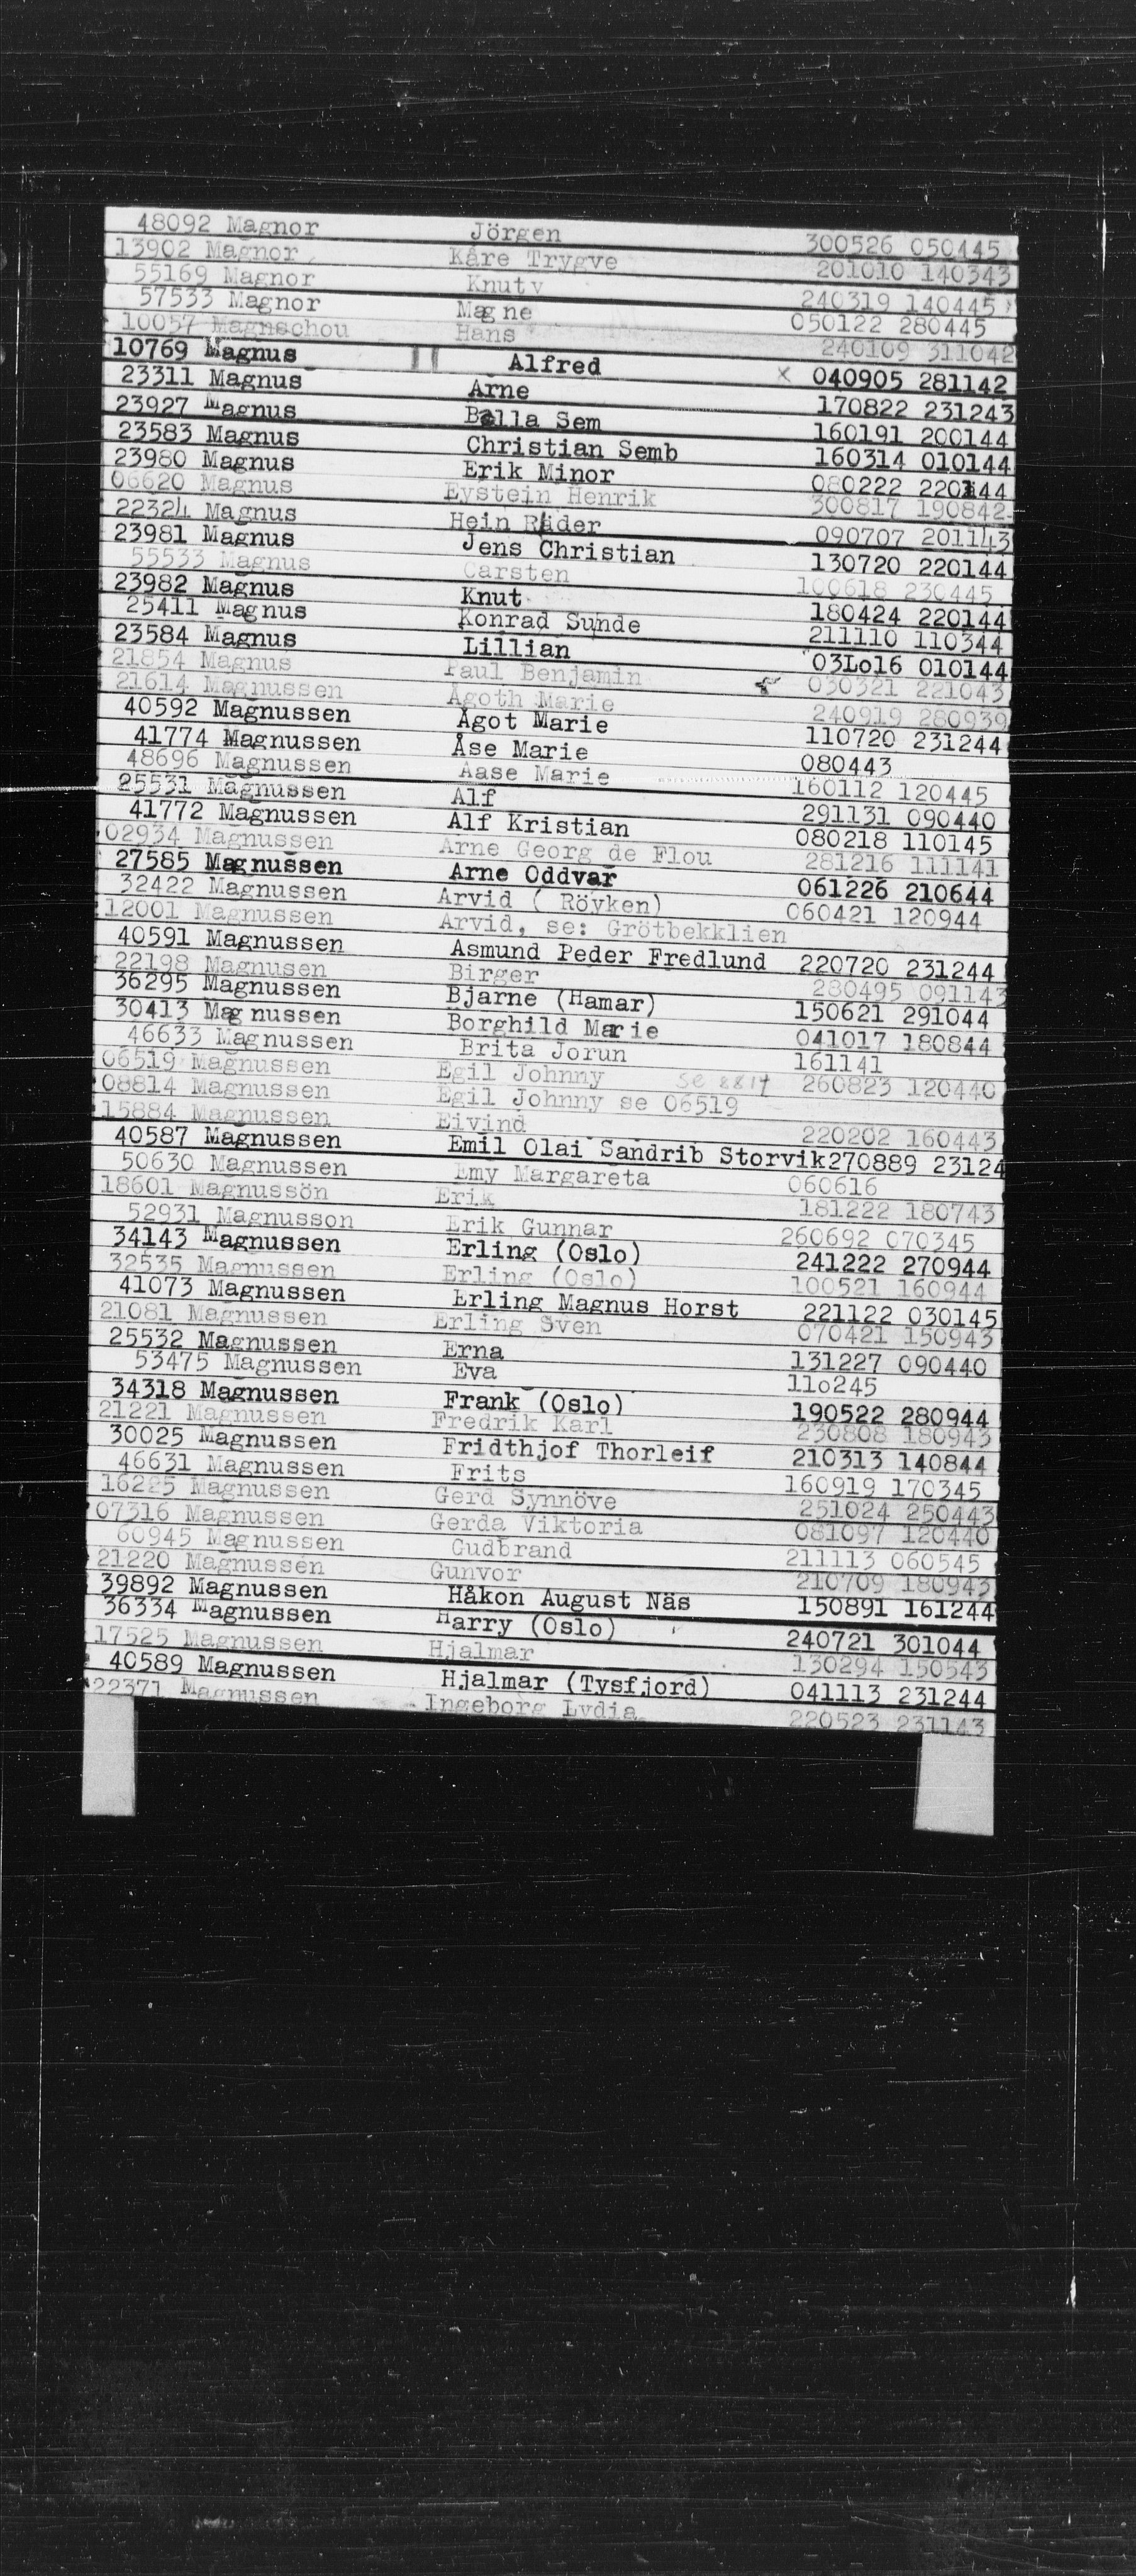 48092 Magnor Jörgen 300526 050445
13902 Magnor Kåre Trygve 201010 140343
55169 Magnor Knutv 240319 140445
57533 Magnor Magne 050122 280445
10057 Magnschou Hans 240109 311042
10769 Magnus Alfred X 040905 281142
23311 Magnus Arne 170822 231243
23927 Magnus Bella Sem 160191 200144
23583 Magnus Christian Semb 160314 010144
23980 Magnus Erik Minor 080222 220144
06620 Magnus Eystein Henrik 300817 190842
22324 Magnus Hein Räder 090707 201143
23981 Magnus Jens Christian 130720 220144
55533 Magnus Carsten 100618 230445
23982 Magnus Knut 180424 220144
25411 Magnus Konrad Sunde 211110 110344
23584 Magnus Lillian 03Lo16 010144
21854 Magnus Paul Benjamin 030321 221043
21614 Magnussen Ågoth Marie 240919 280939
40592 Magnussen Ågot Marie 110720 231244
41774 Magnussen Åse Marie 080443
48696 Magnussen Aase Marie 160112 120445
25531 Magnussen Alf 291131 090440
41772 Magnussen Alf Kristian 080218 110145
02934 Magnussen Arne Georg de Flou 281216 111141
27585 Magnussen Arne Oddvar 061226 210644
32422 Magnussen Arvid ( Röyken) 060421 120944
12001 Magnussen Arvid, se: Grötbekklien
40591 Magnussen Asmund Peder Fredlund 220720 231244
22198 Magnusen Birger 280495 091143
36295 Magnussen Bjarne (Hamar) 150621 291044
30413 Magnussen Borghild Marie 041017 180844
46633 Magnussen Brita Jorun 161141
06519 Magnussen Egil Johnny se 8814 260823 120440
08814 Magnussen Egil Johnny se 06519
15884 Magnussen Eivind 220202 160443
40587 Magnussen Emil Olai Sandrib Storvik270889 23124
50630 Magnussen Emy Margareta 060616
18601 Magnussön Erik 181222 180743
52931 Magnusson Erik Gunnar 260692 070345
34143 Magnussen Erling (Oslo) 241222 270944
32535 Magnussen Erling (Oslo) 100521 160944
41073 Magnussen Erling Magnus Horst 221122 030145
21081 Magnussen Erling Sven 070421 150943
25532 Magnussen Erna 131227 090440
53475 Magnussen Eva 11o245
34318 Magnussen Frank (Oslo) 190522 280944
21221 Magnussen Fredrik Karl 230808 180943
30025 Magnussen Fridthjof Thorleif 210313 140844
46631 Magnussen Frits 160919 170345
16225 Magnussen Gerd Synnöve 251024 250443
07316 Magnussen Gerda Viktoria 081097 120440
60945 Magnussen Gudbrand 211113 060545
21220 Magnussen Gunvor 210709 180943
39892 Magnussen Håkon August Näs 150891 161244
36334 Magnussen Harry (Oslo) 240721 301044
17525 Magnussen Hjalmar 130294 150543
40589 Magnussen Hjalmar (Tysfjord) 041113 231244
22371 Magnussen Ingeborg Lydia 220523 231143